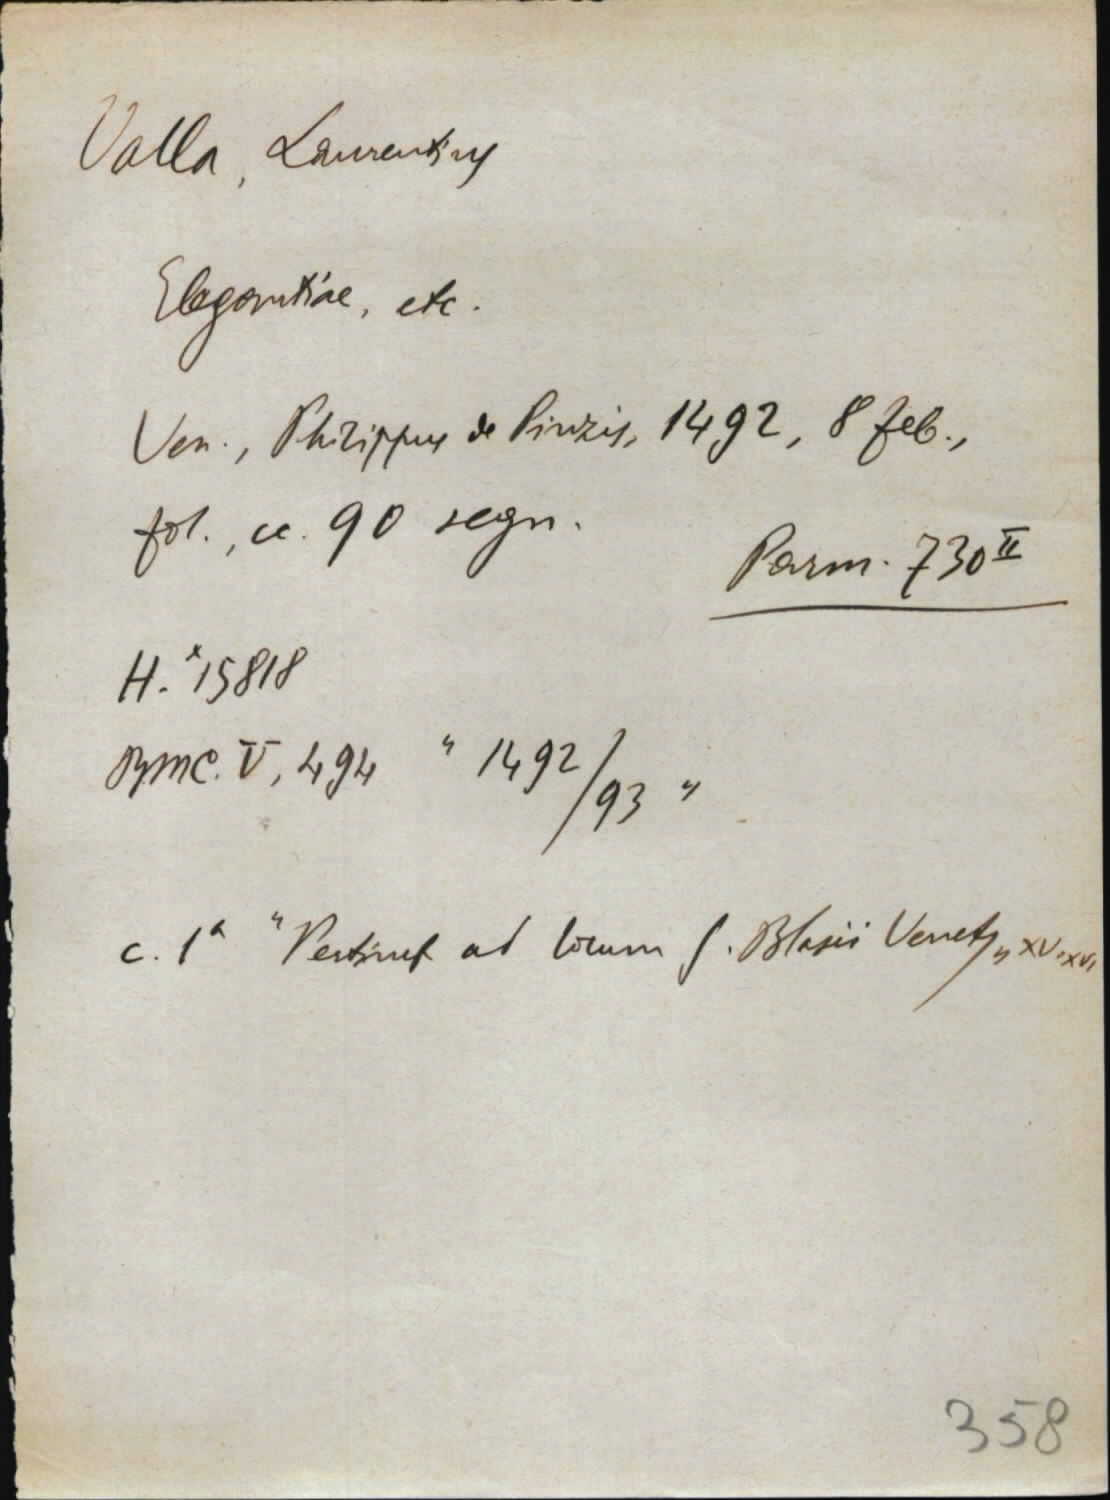 Valla, Laurentius
Elegantiae, etc.
Ven., Philippus de Pinzis, 1492, 8 feb.,
fol., cc. 90 segn.
Parm. 730 II
H. *15818
BMC. V, 494 "1492/93"
c. 1a "Pertinet ad locum S. Blasii Venet," XV-XVI
358